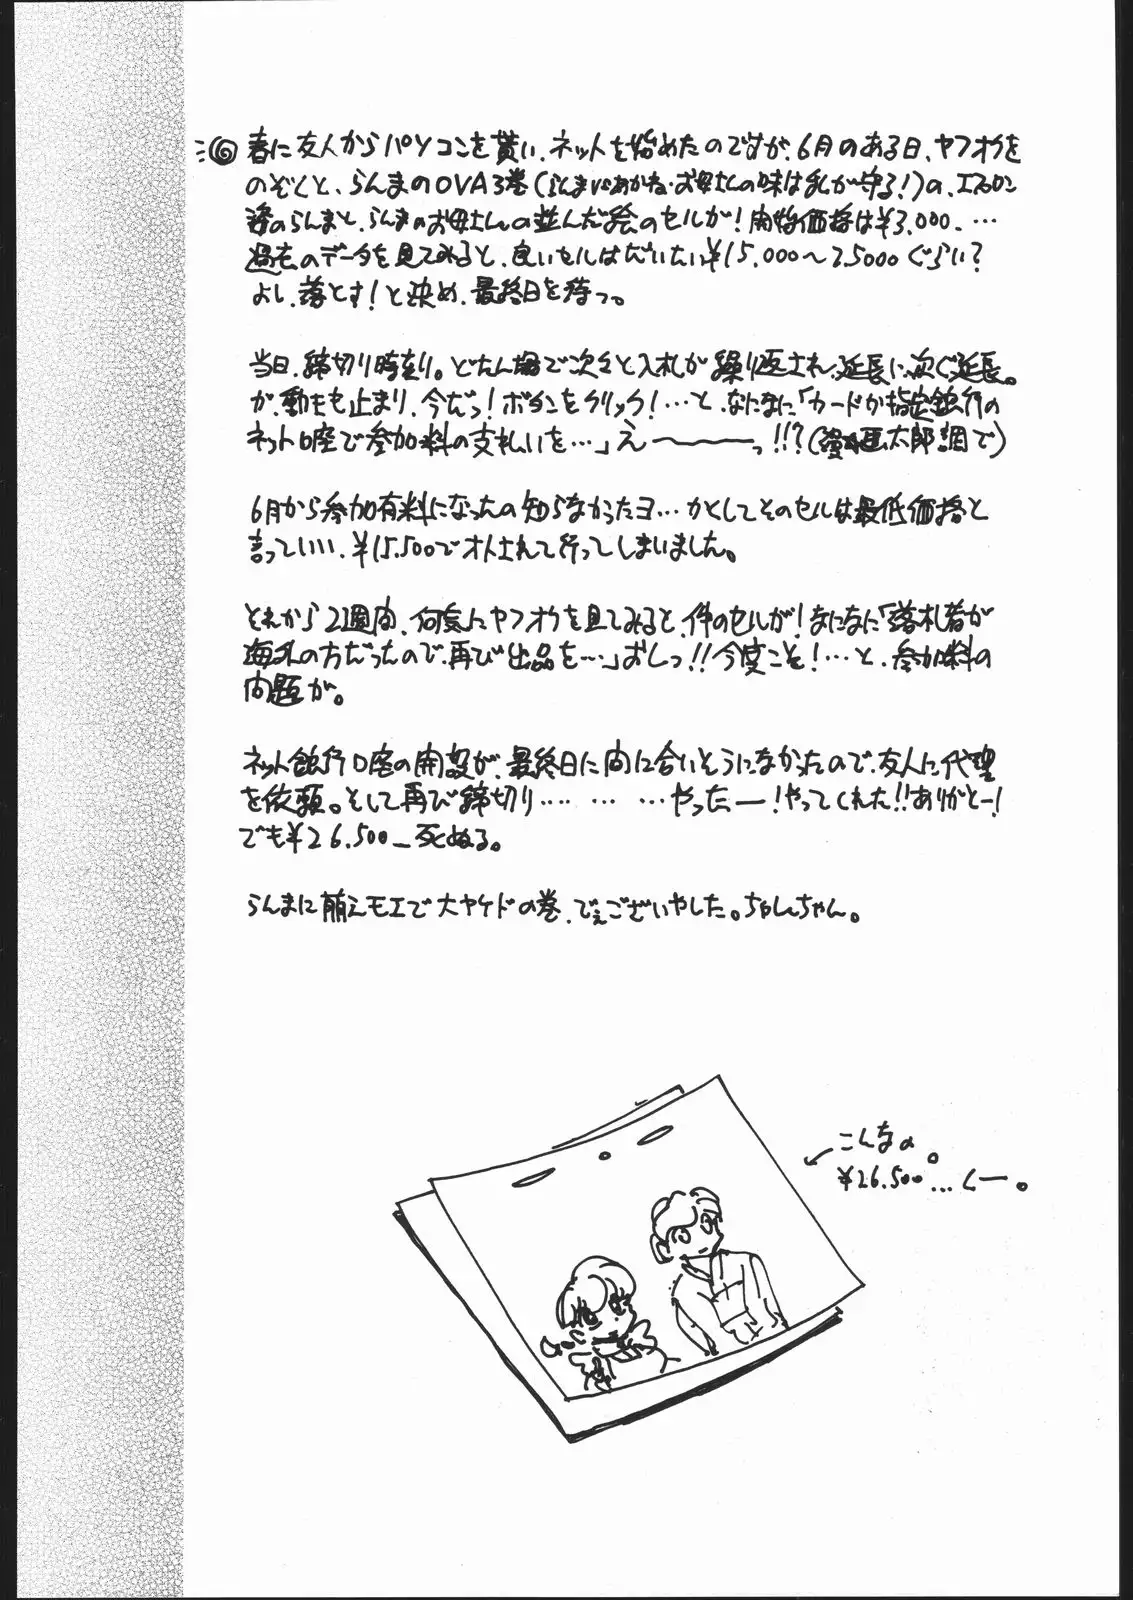 春に友人からパソコンを貰い、ネットを始めたのですが、6月のある日、ヤフオクを
のぞくと、らんまのOVA3巻(らんまVSあかね・お母さんの味は私が守る!)の、エプロン
姿のらんまと、らんまのお母さんの並んだ絵のセルが!開始価格は¥3,000、…
過去のデータを見てみると、良いセルはだいたい¥15,000〜25000ぐらい?
よし、落とす!と決め、最終日を待つ。
当日、締切り時刻。どたん場で次々と入札が繰り返され、延長に次ぐ延長。
が、動きも止まり、今だっ!ボタンをクリック!…と、なになに「カードか指定銀行の
ネット口座で参加料の支払いを…」え〜〜〜っ!!?(漫☆画太郎調で)
6月から参加有料になったの知らなかったヨ…かとしてそのセルは最低価格と
言っていい、¥15,500でオトされて行ってしまいました。
それから2週間、何気にヤフオクを見てみると、件のセルが!なになに「落札者が
海外の方だったので、再び出品を…」おしっ!!今度こそ!…と、参加料の
問題が。
ネット銀行口座の開設が、最終日に間に合いそうになかったので、友人に代理
を依頼。そして再び締切り… … …やったー!やってくれた!!ありがとー!
でも¥26,500_死ぬる。
らんまに萌えモエで大ヤケドの巻、でぇございやした。ちゃんちゃん。
こんなの。
¥26,500…くー。